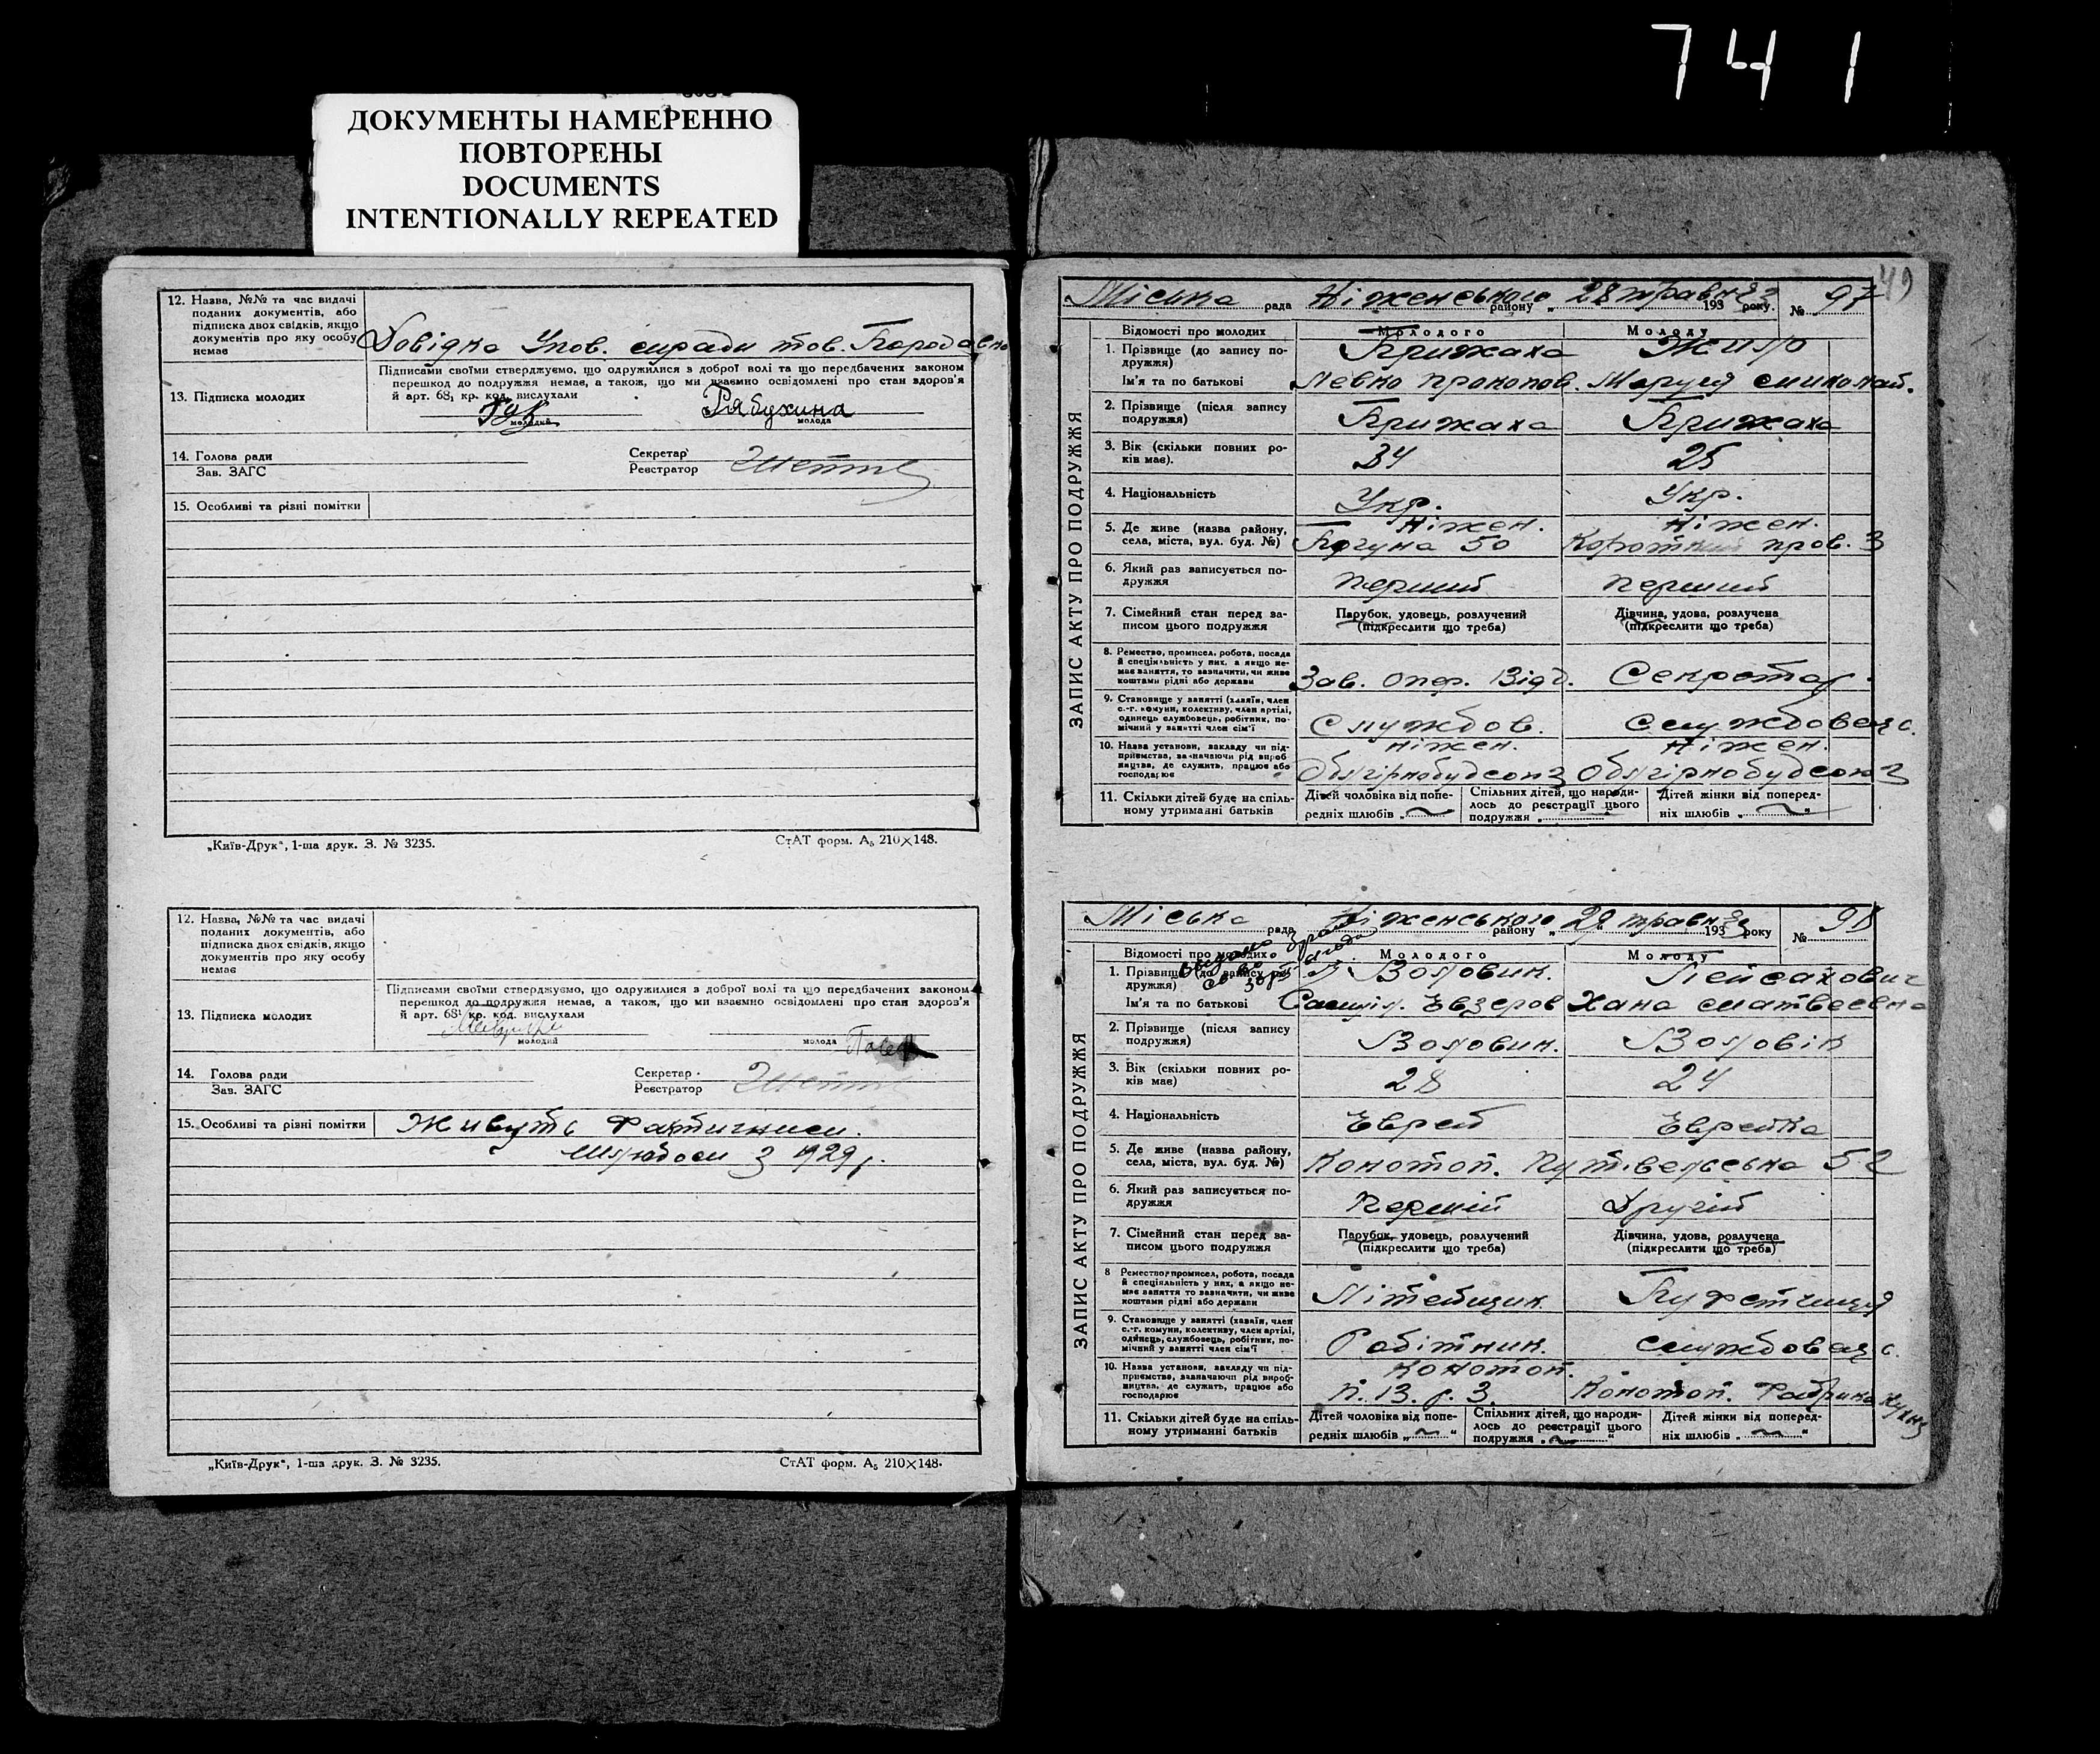 741
ДОКУМЕНТЫ НАМЕРЕННО
ПОВТОРЕНЫ
DOCUMENTS
INTENTIONALLY REPEATED
12. Назва, №№ та час видачі
поданих документів, або
підписка двох свідків, якщо
документів про яку особу
немає
Довідка Упов. міськради тов.
13. Підписка молодих
Підписами своїми стверджуємо, що одружилися з доброї волі та що передбачених законом
перешкод до подружжя немає, а також, що ми взаємно освідомлені про стан здоров'я
й арт. 68¹ кр. код. вислухали
Рябухина
молодий молода
14. Голова ради
Зав. ЗАГС
Секретар
Реєстратор
15. Особливі та різні помітки
„Київ-Друк", 1-ша друк. З. № 3235. СтАТ форм. А₅ 210×148.
12. Назва, №№ та час видачі
поданих документів, або
підписка двох свідків, якщо
документів про яку особу
немає
13. Підписка молодих
Підписами своїми стверджуємо, що одружилися з доброї волі та що передбачених законом
перешкод до подружжя немає, а також, що ми взаємно освідомлені про стан здоров'я
й арт. 68¹ кр. код. вислухали
молодий молода
14. Голова ради
Зав. ЗАГС
Секретар
Реєстратор
15. Особливі та різні помітки Живуть фактичним
шлюбом з 1929 р.
„Київ-Друк", 1-ша друк. З. № 3235. СтАТ форм. А₅ 210×148.
49
Міська рада Ніженського району „ 28 травня 193 року. № 97
ЗАПИС АКТУ ПРО ПОДРУЖЖЯ
Відомості про молодих Молодого Молоду
1. Прізвище (до запису подружжя) Крижаха Жило
Ім'я та по батькові Левко Прокопов. Маруся Миколаїв.
2. Прізвище (після запису
подружжя) Крижаха Крижаха
3. Вік (скільки повних років має). 34 25
4. Національність Укр. Укр.
5. Де живе (назва району,
села, міста, вул. буд. №) Ніжен. Богуна 50 Ніжен. Короткий пров. 3
6. Який раз записується подружжя Перший Перший
7. Сімейний стан перед записом цього подружжя
Парубок, удовець, розлучений
(підкреслити що треба)
Дівчина, удова, розлучена
(підкреслити що треба)
8. Ремество, промисел, робота, посада
й спеціяльність у них, а якщо немає заняття, то зазначити, чи живе
коштами рідні або держави Зав. Опер. Відд. Секретар
9. Становище у занятті (хазяїн, член
с.-г. комуни, колективу, член артілі,
одинець службовець, робітник, помічний у занятті член сім'ї Службов. Службовець
10. Назва установи, закладу чи підприємства, зазначаючи рід виробництва, де служить, працює або
господарює Ніжен. Ніжен.
11. Скільки дітей буде на спільному утриманні батьків
Дітей чоловіка від попередніх шлюбів
Спільних дітей, що народилось до реєстрації цього
подружжя
Дітей жінки від попередніх шлюбів
Міська рада Ніженського району „ 28 травня 1933 року № 98
ЗАПИС АКТУ ПРО ПОДРУЖЖЯ
Відомості про молодих Молодого Молоду
1. Прізвище (до запису подружжя) Воловик. Пейсахович
Ім'я та по батькові Самуїл. Евзеров Хана Матвеевна
2. Прізвище (після запису
подружжя) Воловик. Воловік
3. Вік (скільки повних років має) 28 24
4. Національність Еврей Еврейка
5. Де живе (назва району,
села, міста, вул. буд. №) Конотоп. Путівельська 52
6. Який раз записується подружжя Перший Другій
7. Сімейний стан перед записом цього подружжя
Парубок, удовець, розлучений
(підкреслити що треба)
Дівчина, удова, розлучена
(підкреслити що треба)
8 Ремество, промисел, робота, посада
й спеціяльність у них, а якщо немає заняття то зазначити, чи живе
коштами рідні або держави Літейщик Буфетчиця
9. Становище у занятті (хазяїн, член
с.-г. комуни, колективу, член артілі,
одинець, службовець, робітник, помічний у занятті член сім'ї Робітник. Службовець
10. Назва установи, закладу чи підприємства, зазначаючи рід виробництва, де служить, працює або
господарює Конотоп. Конотоп. Фабрика Кухня
11. Скільки дітей буде на спільному утриманні батьків
Дітей чоловіка від попередніх шлюбів
Спільних дітей, що народилось до реєстрації цього
подружжя
Дітей жінки від попередніх шлюбів